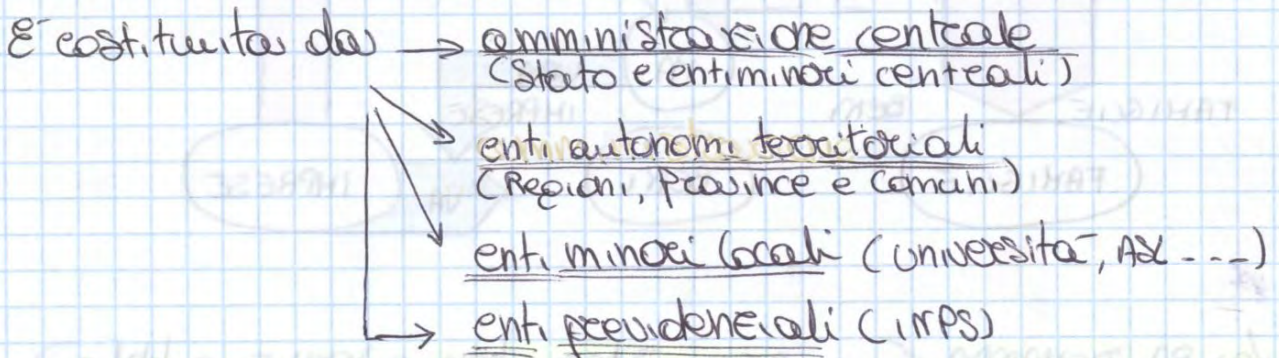 È costituita da → amministrazione centrale
(Stato e enti minori centrali)
enti autonomi territoriali
(Regioni, Province e Comuni)
enti minori locali (Università, ASL ---)
enti previdenziali (INPS)
FAMIGLIE
IMPRESE
FAMIGLIE
IMPRESE